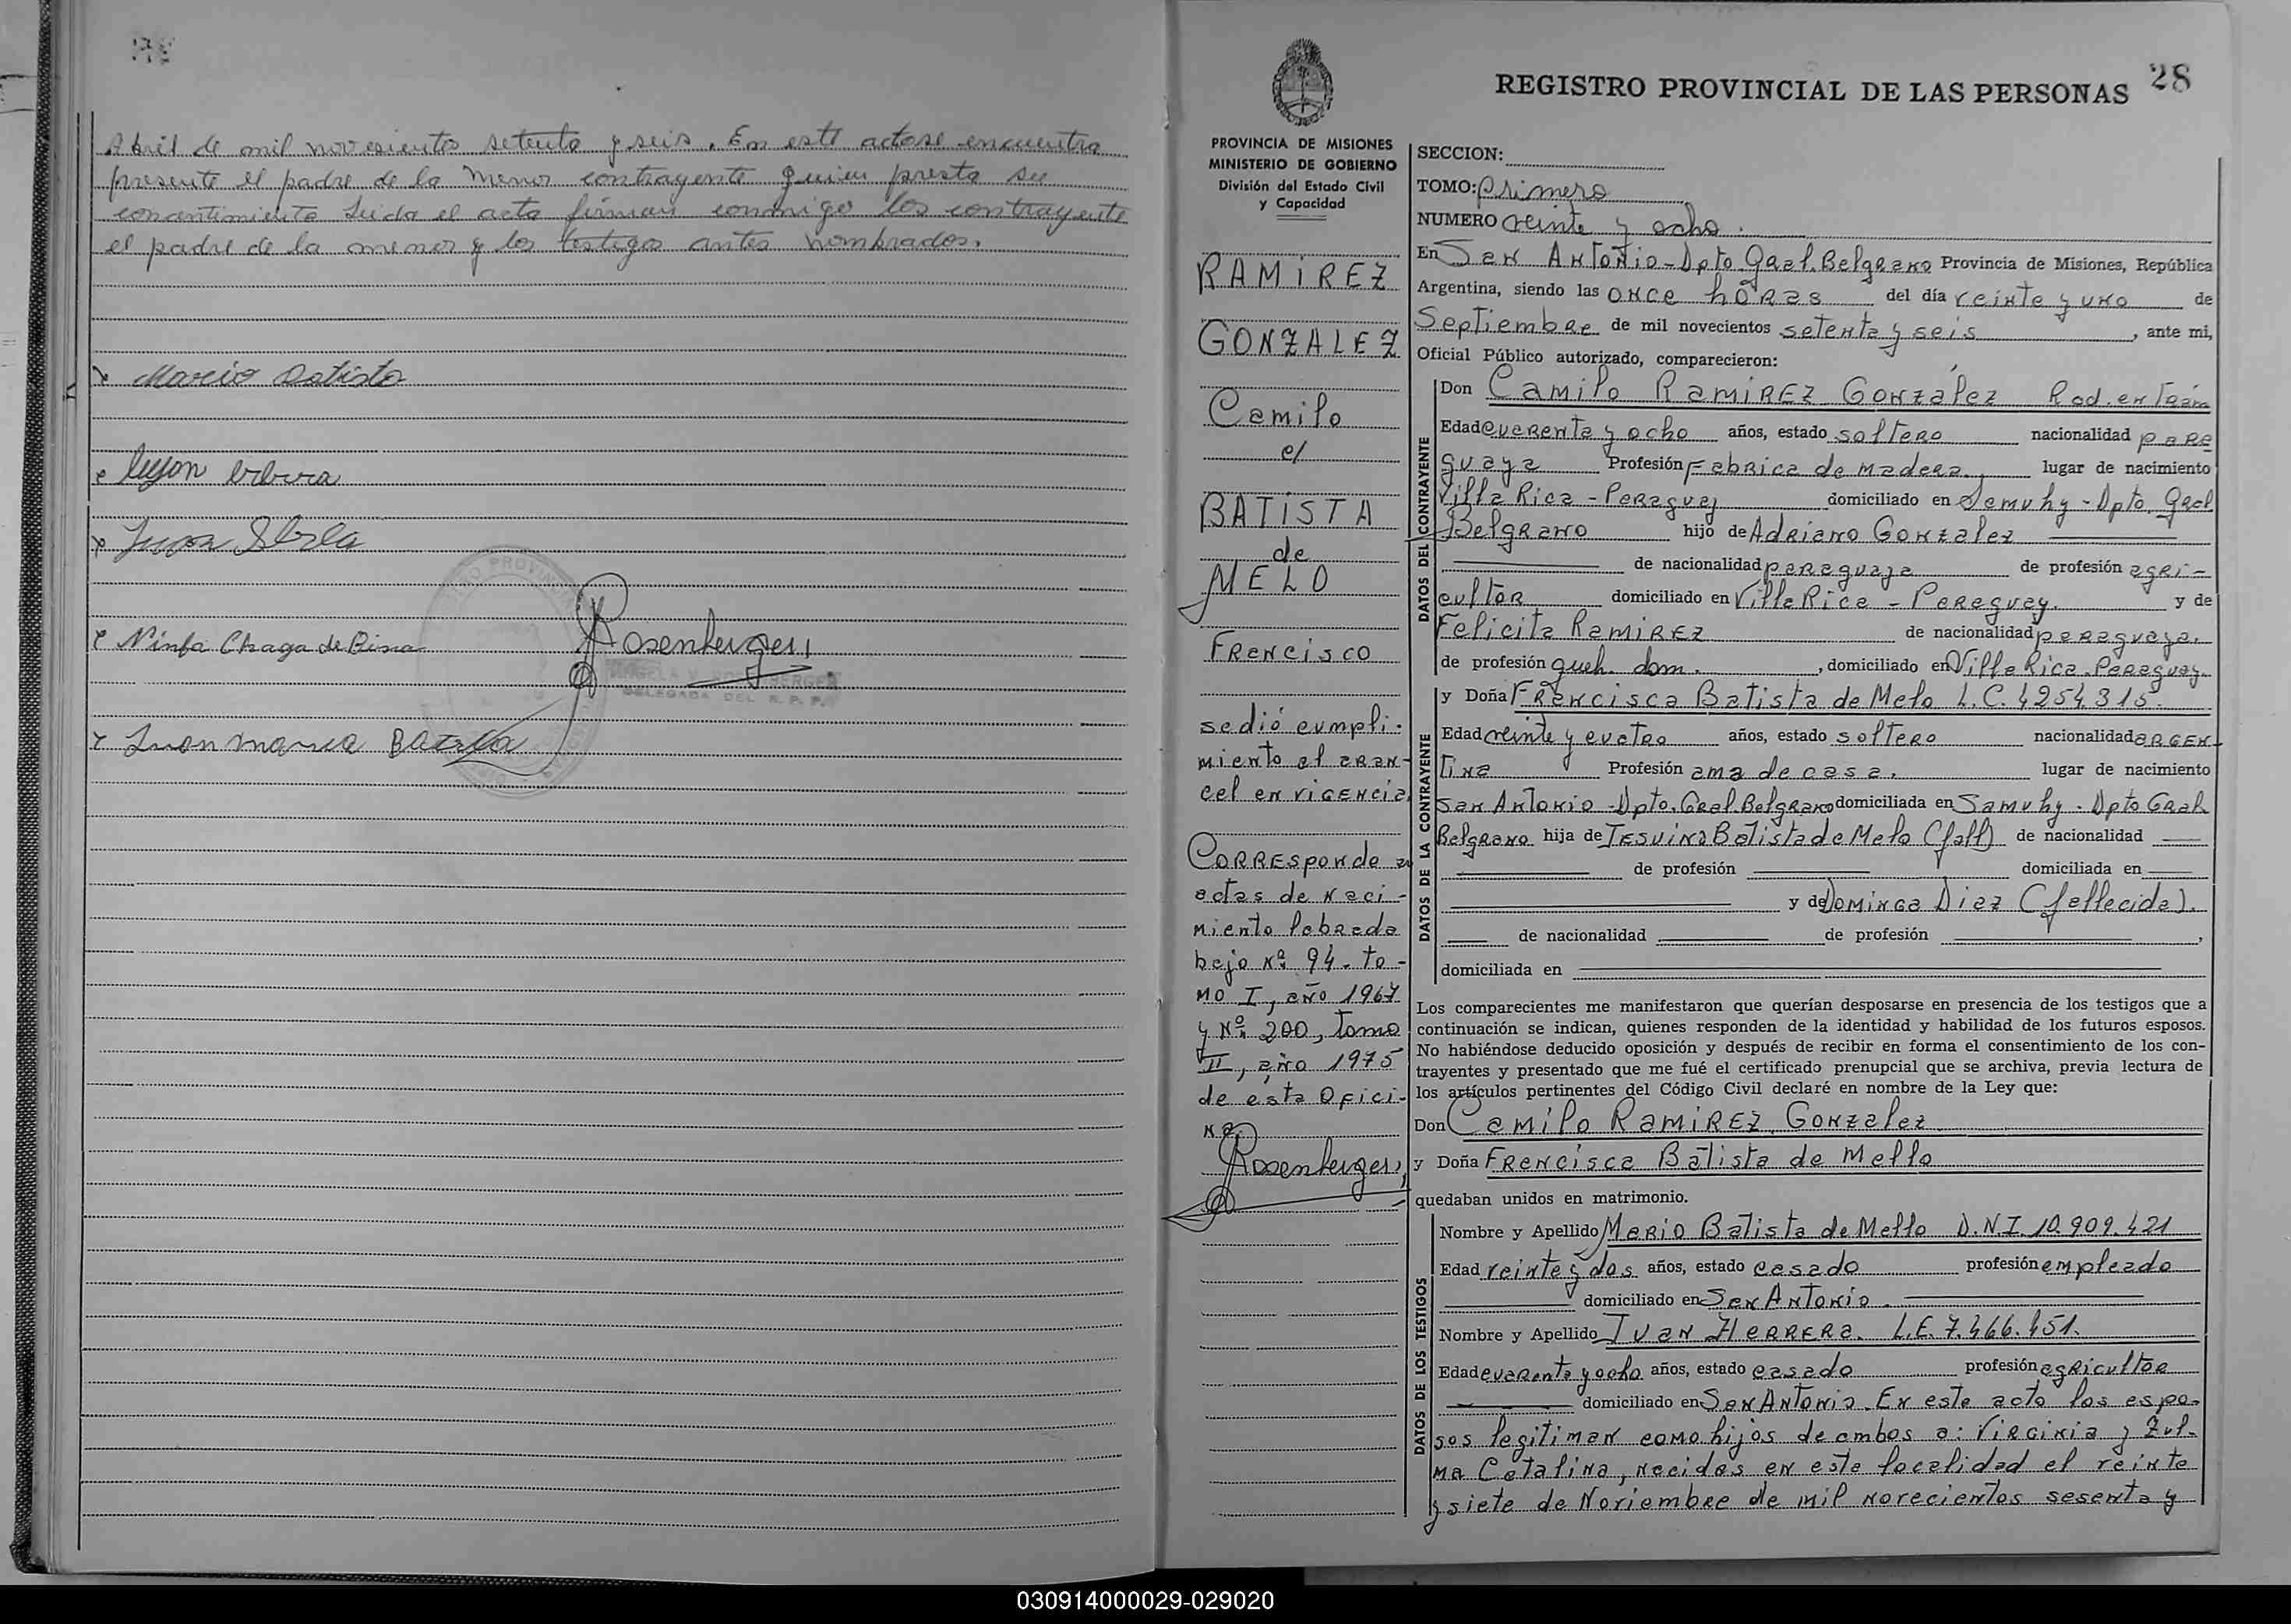 Abril de mil novecientos setenta y seis. En este acto se encuentra
presente el padre de la menor contrayente quien presta su
concentimiento Leida el acta firman conmigo los contrayente
el padre de la menor y los testigos antes nombrados.
Mario Batista
Juan
Ninfa Chaga de Pina
Rosenberger
DELEGADA DEL R. P. P.
Juan Maria Batista
28
REGISTRO PROVINCIAL DE LAS PERSONAS
PROVINCIA DE MISIONES
MINISTERIO DE GOBIERNO
División del Estado Civil
y Capacidad
RAMIREZ
GONZALEZ
Camilo
c/
BATISTA
de
MELO
Francisco
se dió cumpli-
miento al aran-
cel en vigencia.
Corresponde a
actas de naci-
miento labrada
bajo Nº 94 - to-
mo I, año 1967
y Nº 200, tomo
II, año 1975
de ésta Ofici-
na.
Rosenberger
SECCION:
TOMO: Primero
NUMERO veinte y ocho.
En San Antonio - Dpto. Gral. Belgrano Provincia de Misiones, República
Argentina, siendo las once horas del día veinte y uno de
Septiembre de mil novecientos setenta y seis, ante mi,
Oficial Público autorizado, comparecieron:
DATOS DEL CONTRAYENTE
Don Camilo Ramirez Gonzalez Rad. en Trám
Edad cuarenta y ocho años, estado soltero nacionalidad para
guaya Profesión Fabrica de madera. lugar de nacimiento
Villa Rica - Paraguay domiciliado en Samuhy - Dpto. Gral
Belgrano hijo de Adriano Gonzalez
de nacionalidad paraguaya de profesión agri-
cultor domiciliado en Villa Rica - Paraguay. y de
Felicita Ramirez de nacionalidad paraguaya.
de profesión queh. dom., domiciliado en Villa Rica - Paraguay.
DATOS DE LA CONTRAYENTE
y Doña Francisca Batista de Melo L.C. 4254315.
Edad veinte y cuatro años, estado soltero nacionalidad argen
tina Profesión ama de casa. lugar de nacimiento
San Antonio - Dpto. Gral. Belgrano domiciliada en Samuhy - Dpto Gral
Belgrano hija de Jesuino Batista de Melo (fall) de nacionalidad
de profesión domiciliada en
y de Dominga Diaz (fallecida).
de nacionalidad de profesión ,
domiciliada en
Los comparecientes me manifestaron que querían desposarse en presencia de los testigos que a
continuación se indican, quienes responden de la identidad y habilidad de los futuros esposos.
No habiéndose deducido oposición y después de recibir en forma el consentimiento de los con-
trayentes y presentado que me fué el certificado prenupcial que se archiva, previa lectura de
los artículos pertinentes del Código Civil declaré en nombre de la Ley que:
Don Camilo Ramirez Gonzalez
y Doña Francisca Batista de Mello
quedaban unidos en matrimonio.
DATOS DE LOS TESTIGOS
Nombre y Apellido Mario Batista de Mello D.N.I. 10.909.421
Edad veinte y dos años, estado casado profesión empleado
domiciliado en San Antonio.
Nombre y Apellido Juan Herrera. L.E. 7.466.451.
Edad cuarenta y ocho años, estado casado profesión agricultor
domiciliado en San Antonio. En este acto los espo-
sos legitiman como hijos de ambos a: Virginia y Zul-
ma Catalina, nacidas en esta localidad el veinte
y siete de Noviembre de mil novecientos sesenta y
030914000029-029020